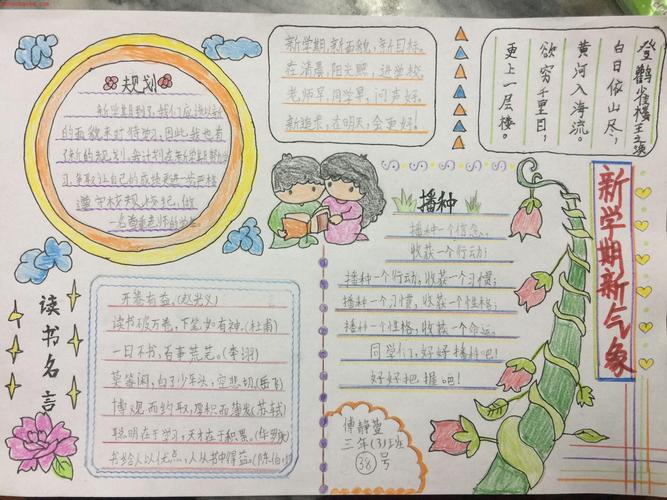 规划
新学期到了,我们应该以新
的面貌来对待学习,因此,我也有
了新的规划。
习,争取让自己的成绩更进一步,严格
遵守校规小学纪,做
一名尊重老师的学生。
新学期,新面貌,新目标。
在清晨,阳光照,进学校
老师早,同学早,问声好。
新追求,在明天,会更好。
登鹳雀楼 王之涣
白日依山尽,
黄河入海流。
欲穷千里目,
更上一层楼。
新学期新气象
播种
播种一个信念,
收获一个行动;
播种一个行动,收获一个习惯;
播种一个习惯,收获一个性格;
播种一个性格,收获一个命运。
同学们,好好播种吧!
好好把握吧!
读书名言
开卷有益。(赵光义)
读书破万卷,下笔如有神。(杜甫)
一日不书,百事荒芜。(李诩)
莫等闲,白了少年头,空悲切。(岳飞)
博观而约取,厚积而薄发。(苏轼)
聪明在于学习,天才在于积累。(华罗庚)
书给人以优点,人从书中得益。
傅静萱
三年(3)班
38号